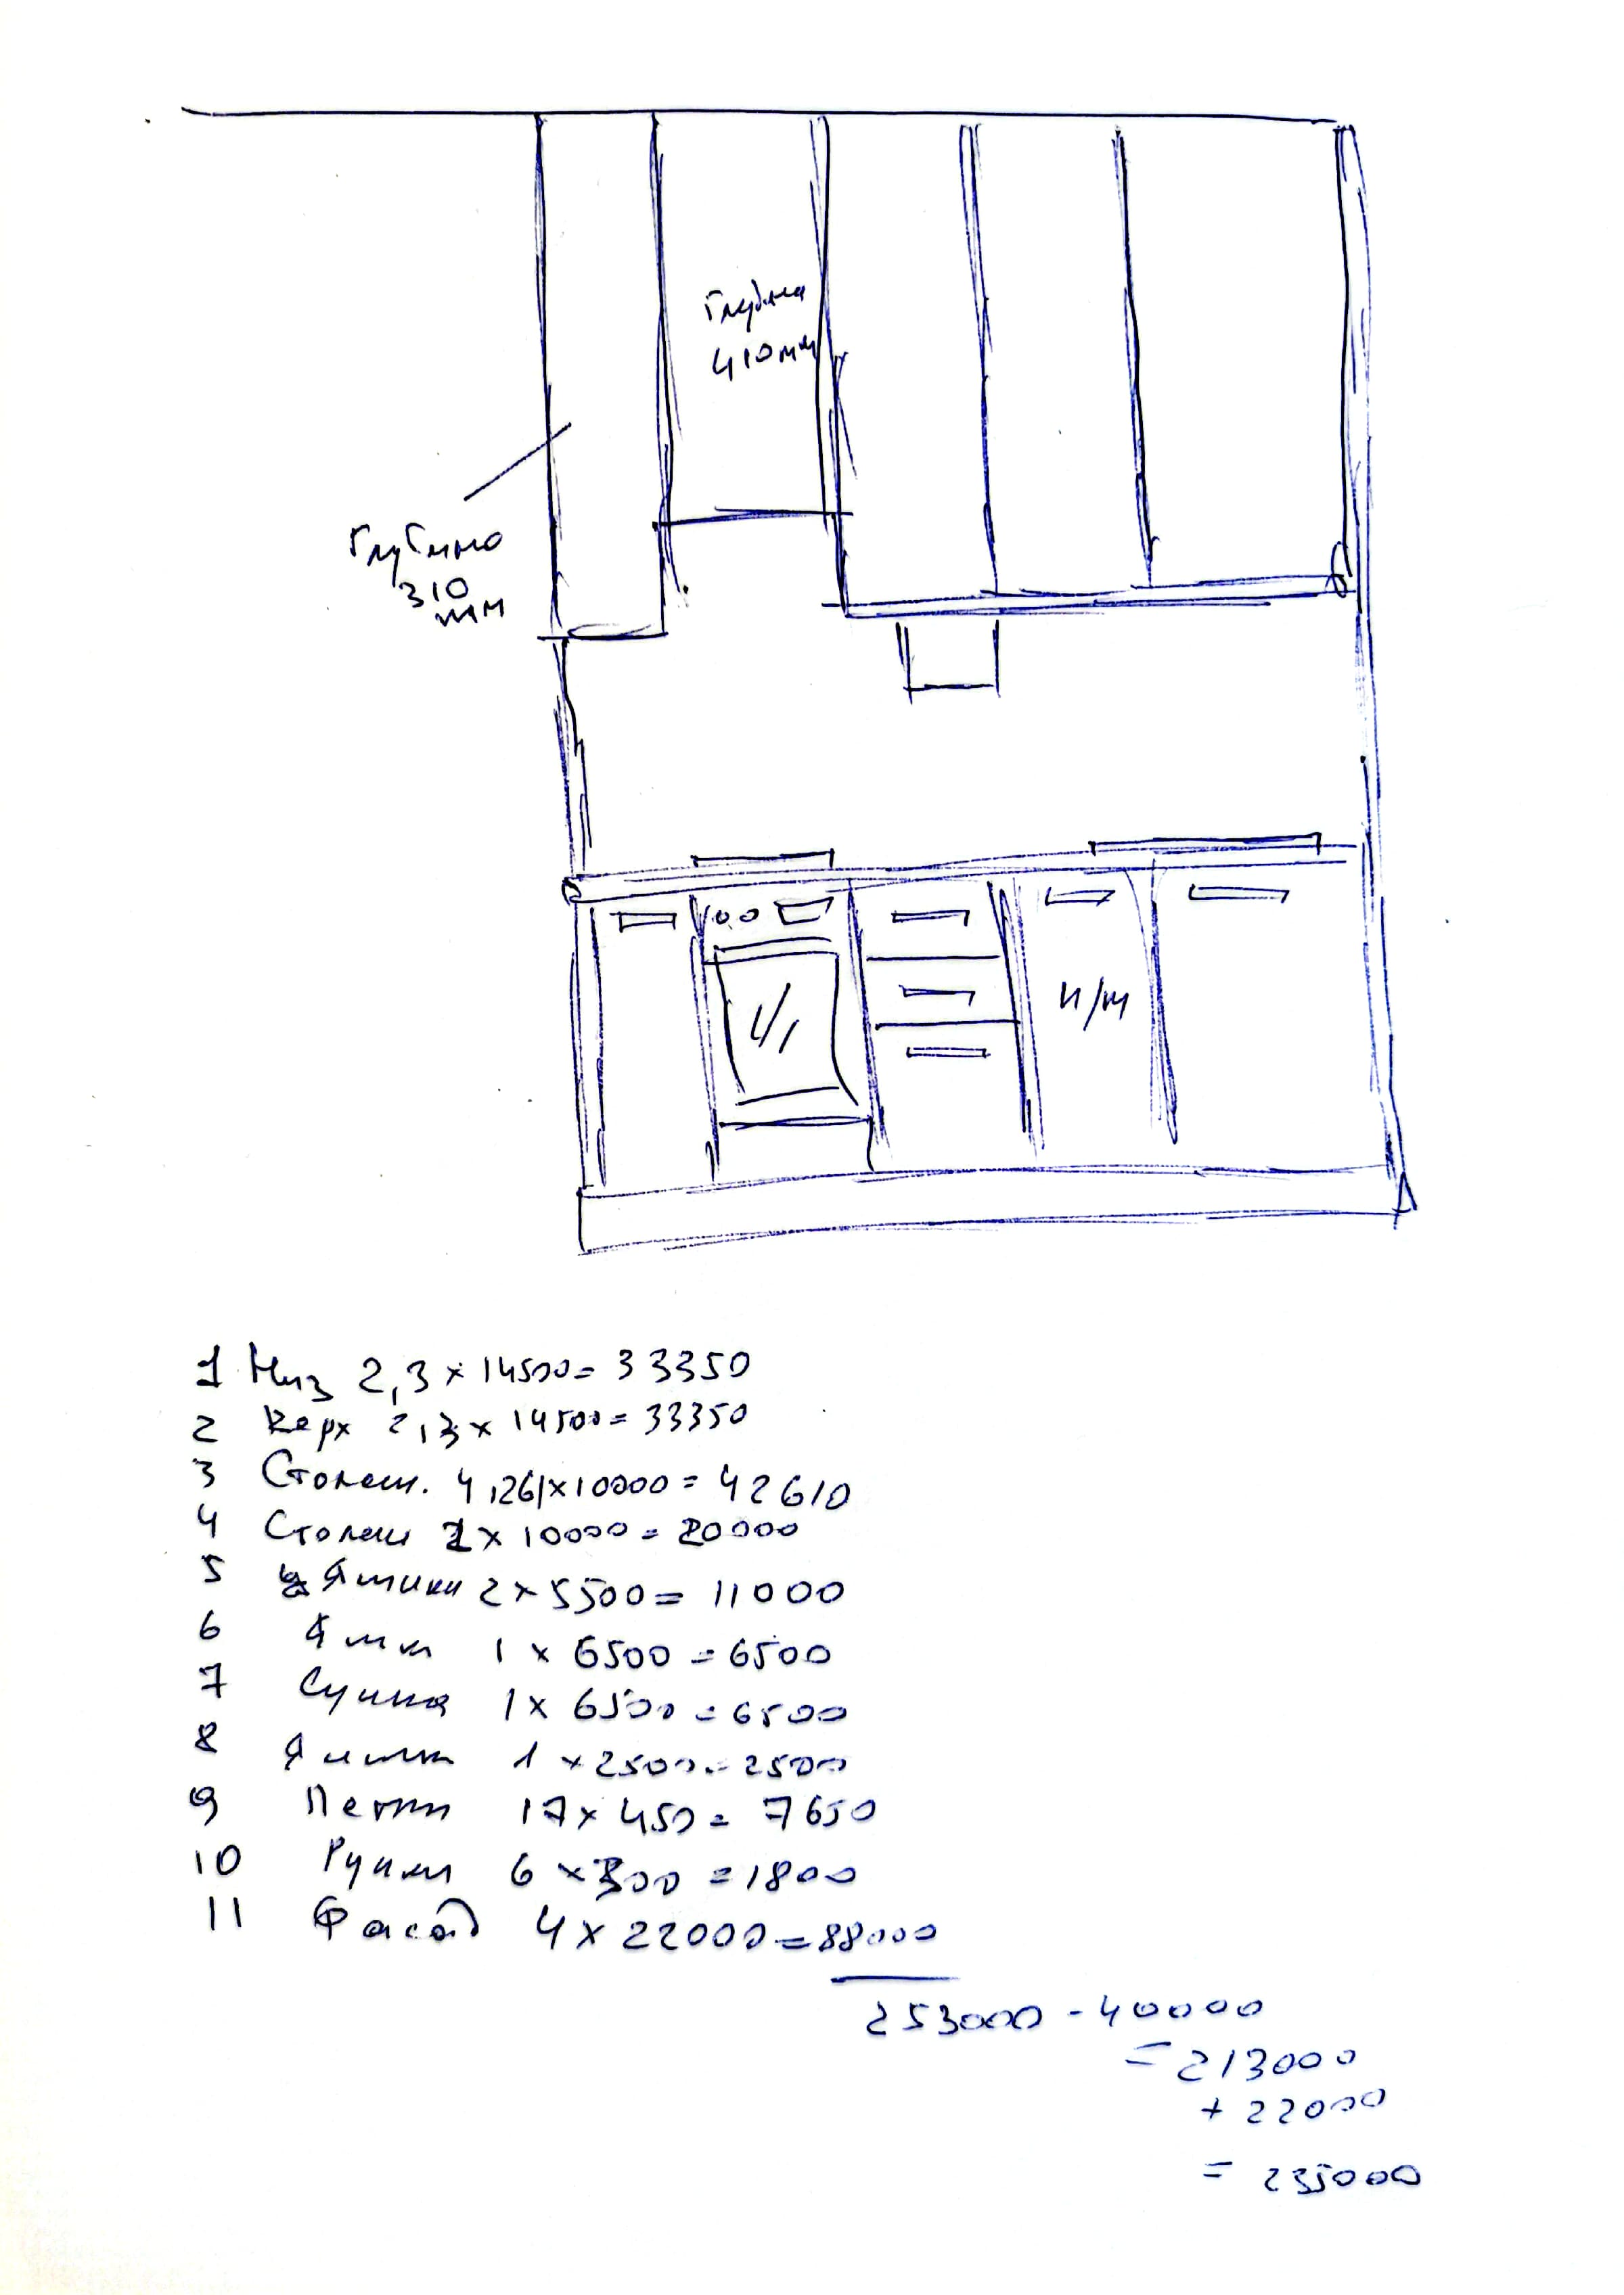 Глубина
410мм
Глубина
310
мм
П/М
1 Низ 2,3 x 14500 = 33350
2 Верх 2,3 x 14500 = 33350
3 Столеш. 4,261 x 10000 = 42610
4 Столеш 2 x 10000 = 20000
5 Ящики 2 x 5500 = 11000
6 Ящик 1 x 6500 = 6500
7 Сушка 1 x 6500 = 6500
8 Ящик 1 x 2500 = 2500
9 Петли 17 x 450 = 7650
10 Ручки 6 x 300 = 1800
11 Фасад 4 x 22000 = 88000
253000 - 40000
= 213000
+ 22000
= 235000